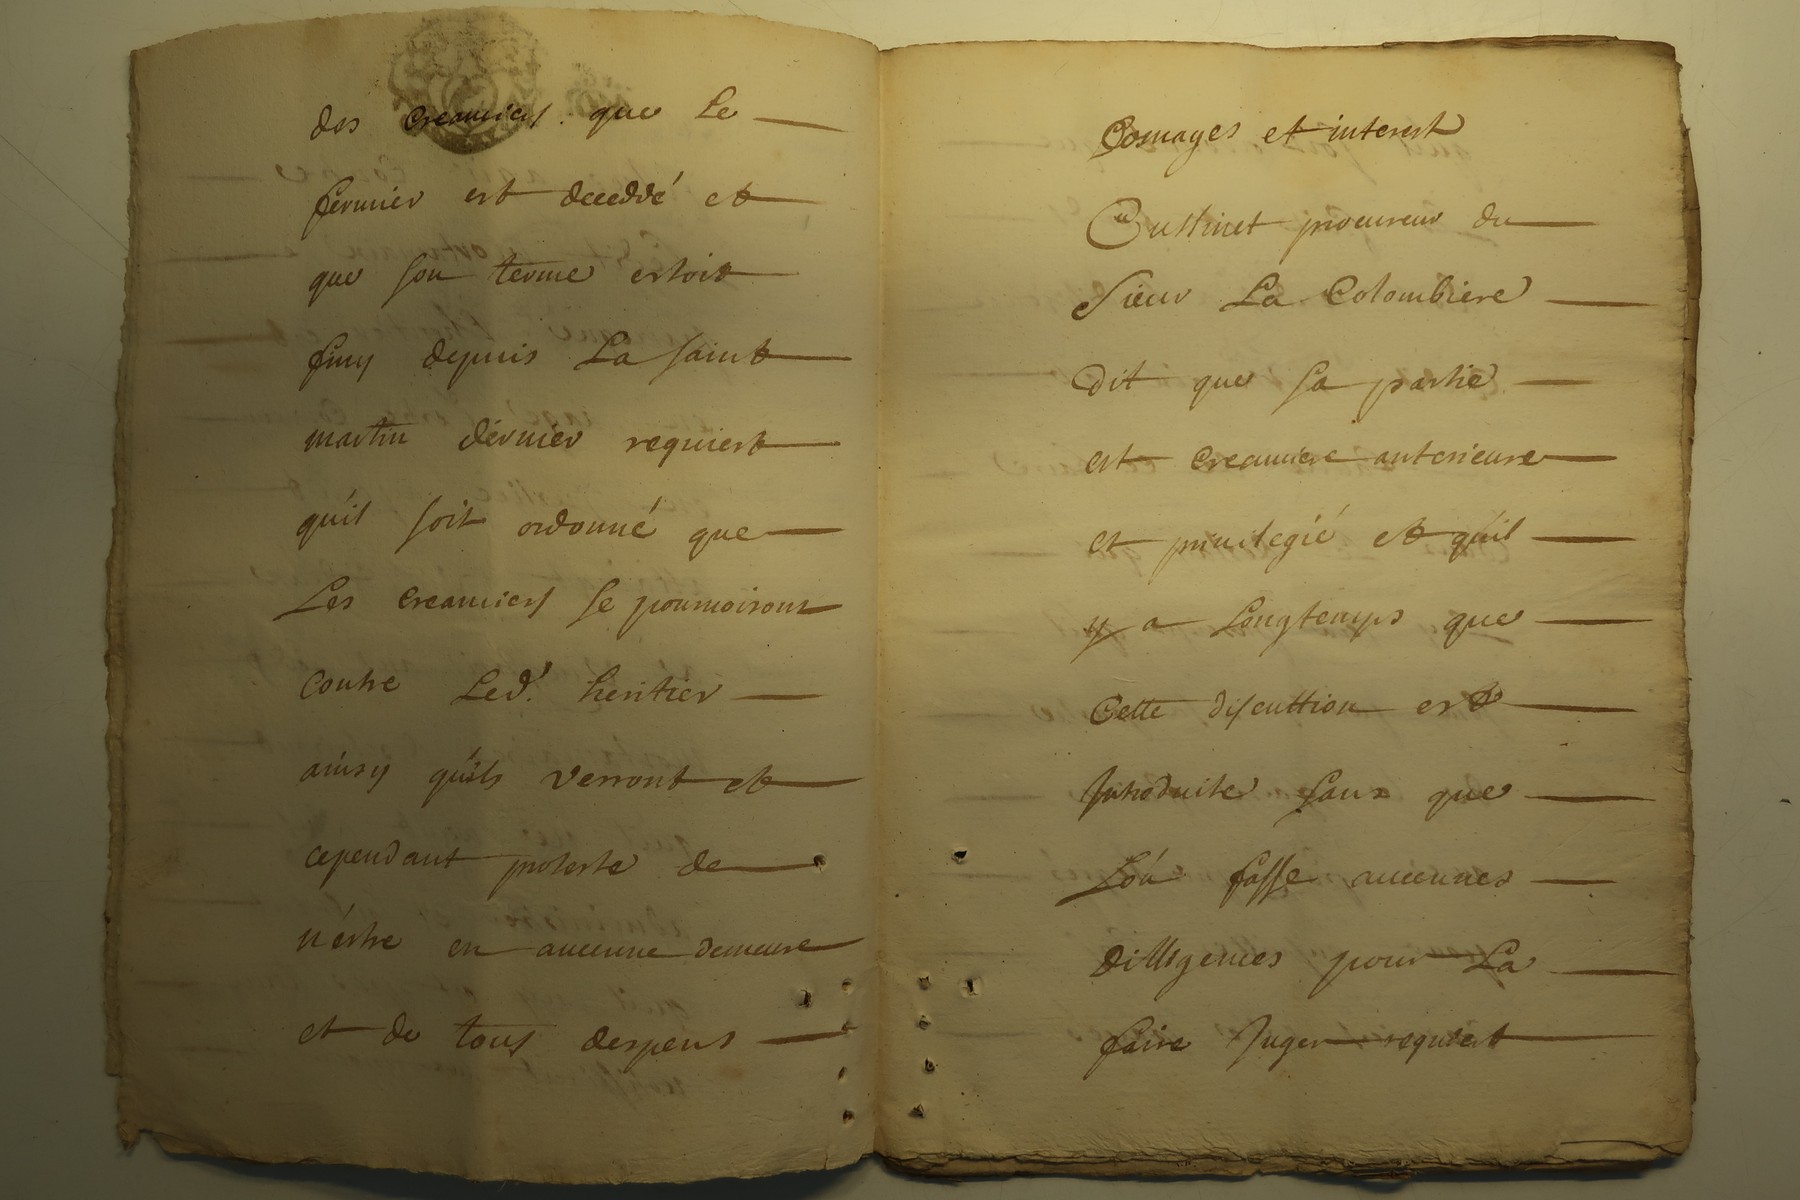 des creanciers que Le
fermier est deceddé et
que son terme estoit
finy depuis La saint
martin dérniér requiert
qu'il soit ordonné que
Les creanciers se pourvoiront
contre Led.t heritier
ainsy qu'ils verront et
cependant proteste de
n'éstre en aucunne demeure
et de tous despens
Domages et interest
procureur du
sieur La Colombiere
dit que sa partie
est creanciere anterieure
et privilegié et qu'il
y a Longtemps que
cette discuttion est
Introduite sans que
L'on fasse aucunnes
dilligences pour La
faire Juger requiert